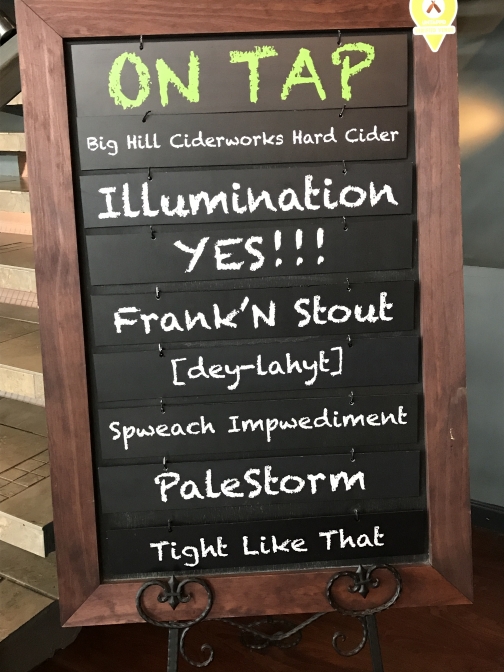 ON TAP
Big Hill Ciderworks Hard Cider
Illumination
YES!!!
Frank'N Stout
[dey-lahyt]
Spweach Impwediment
PaleStorm
Tight Like That